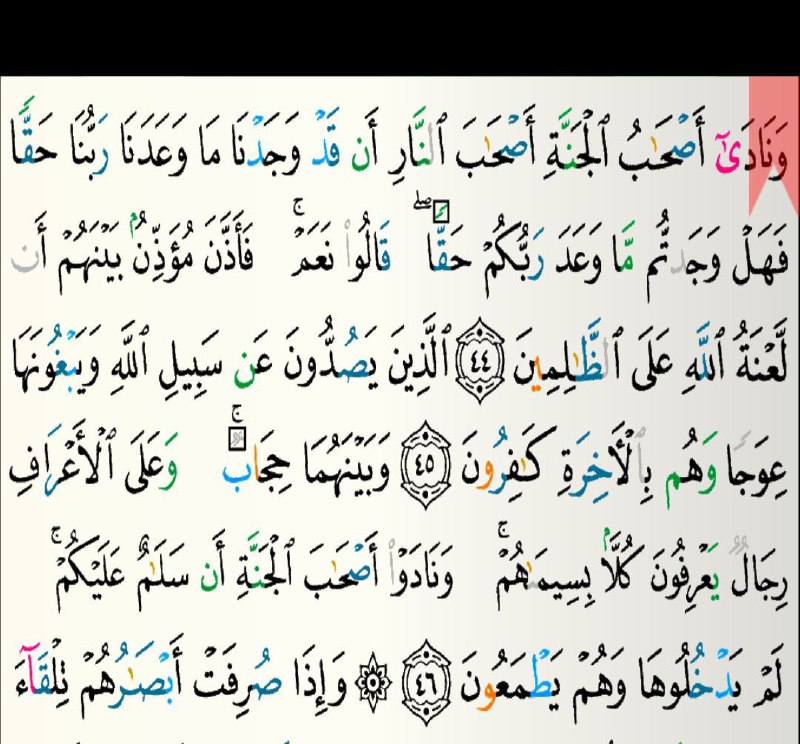 وَنَادَىٰٓ أَصْحَـٰبُ ٱلْجَنَّةِ أَصْحَـٰبَ ٱلنَّارِ أَن قَدْ وَجَدْنَا مَا وَعَدَنَا رَبُّنَا حَقًّا
فَهَلْ وَجَدتُّم مَّا وَعَدَ رَبُّكُمْ حَقًّا ۖ قَالُوا۟ نَعَمْ ۚ فَأَذَّنَ مُؤَذِّنٌۢ بَيْنَهُمْ أَن
لَّعْنَةُ ٱللَّهِ عَلَى ٱلظَّـٰلِمِينَ ٤٤ ٱلَّذِينَ يَصُدُّونَ عَن سَبِيلِ ٱللَّهِ وَيَبْغُونَهَا
عِوَجًا وَهُم بِٱلْأَخِرَةِ كَـٰفِرُونَ ٤٥ وَبَيْنَهُمَا حِجَابٌ ۚ وَعَلَى ٱلْأَعْرَافِ
رِجَالٌ يَعْرِفُونَ كُلًّۢا بِسِيمَىٰهُمْ ۚ وَنَادَوْا۟ أَصْحَـٰبَ ٱلْجَنَّةِ أَن سَلَـٰمٌ عَلَيْكُمْ ۚ
لَمْ يَدْخُلُوهَا وَهُمْ يَطْمَعُونَ ٤٦ ۞ وَإِذَا صُرِفَتْ أَبْصَـٰرُهُمْ تِلْقَآءَ